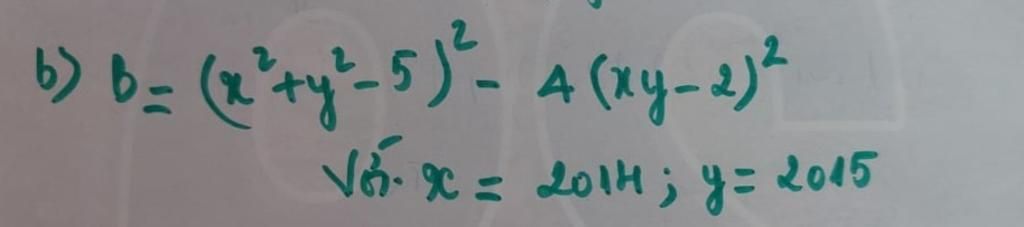 b) b = (x² + y² - 5)² - 4 (xy - 2)²
Với x = 2014; y = 2015